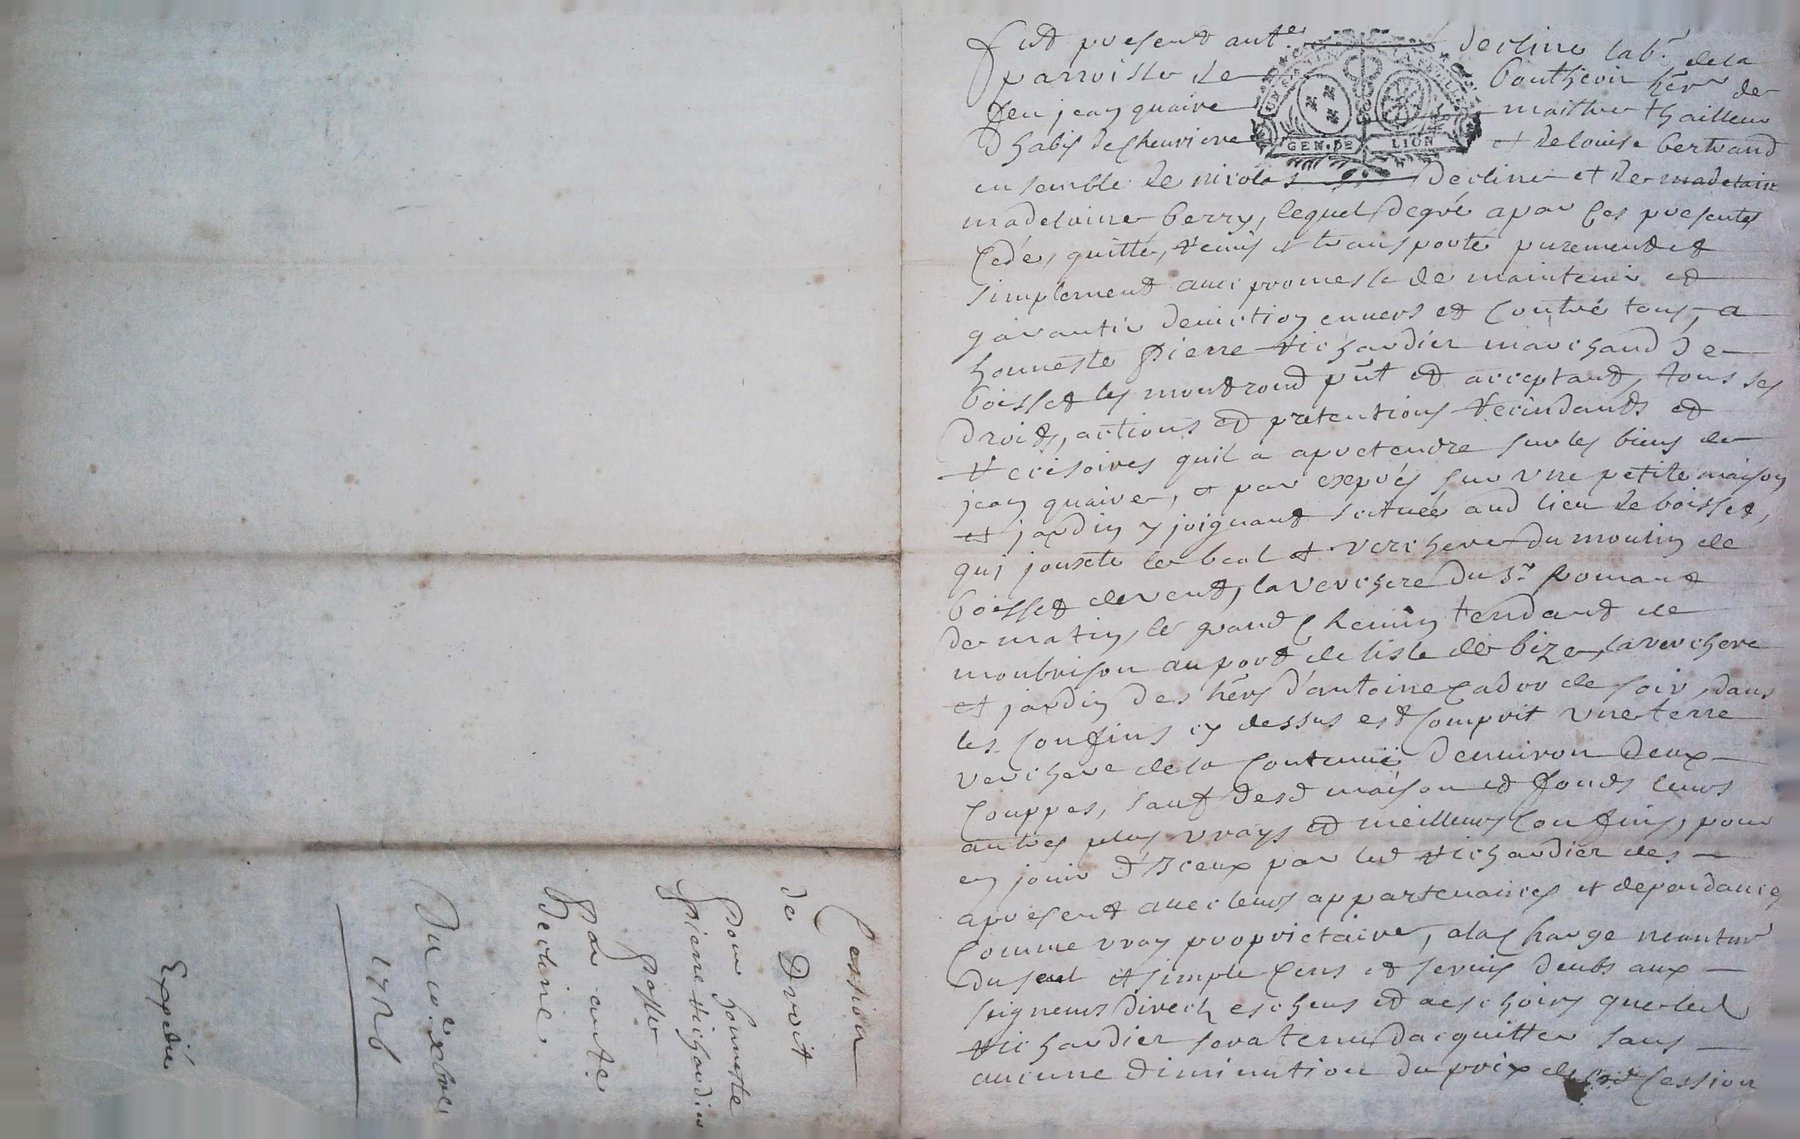 Cession
de Droit
Pour honneste
Pierre Richardier
Passé
Par ant.e
Decline.
Du 10.e xbre
1726
Expédié
GEN. DE LION
fut present ant.e decline lab.r de la
parroisse de bouthéon hér de
feu jean quaire maistre thailleur
d'habis de cheuriere et de louise bertrand
ensemble de nicolas decline et de madelaine
madelaine berry, lequel de gré a par ces presentes
cedé, quitté, remis et transporté purement et
simplement auec promesse de maintenir et
garantir deuiction enuers et contre tous, a
honneste pierre richardier marchand de
boisset les montrond pñt et acceptant, tous ses
droits, actions et pretentions recindants et
recisoires quil a a pretendre sur les biens de
jean quaire, et par exprés sur vne petite maison
et jardin y joignant scituée aud lieu de boisset,
qui jouxte le beal et verchere du moulin de
boisset de vent, la verchere du s.r romant
de matin, le grand chemin tendant de
monbrison au port de lisle de bize, la verchere
et jardin des hérs d'antoine cador de soir, dans
les confins cy dessus est comprit vne terre
verchere de la contenue denuiron deux
couppes, sauf desd maison et fonds leurs
autres plus vrays et meilleurs confins, pour
en jouir d'iceux par led richardier des
apresent auec leurs appartenances et dependances
comme vray proprietaire, a la charge neantm.
du seul et simple cens et seruis deubs aux
seigneurs direct escheus et a eschoirs que led
richardier sera tenu dacquitter sans
aucune diminution du prix de cession